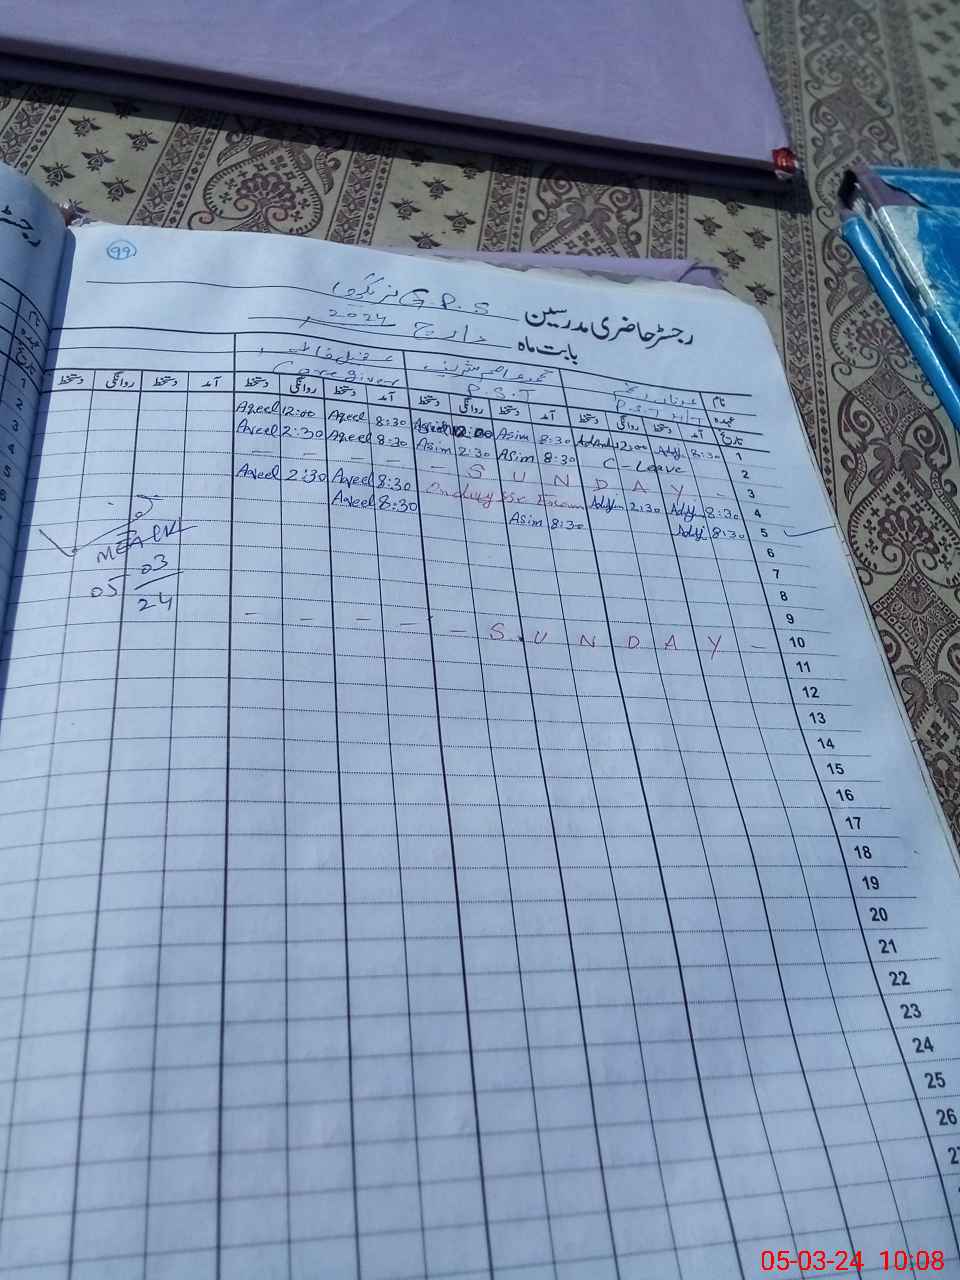 99
رجسٹر حاضری مدرسین G.P.S
بابت ماہ مارچ 2024
نام
عہدہ P.S.T P.S.T Care giver
تاریخ آمد دستخط روانگی دستخط آمد دستخط روانگی دستخط آمد دستخط روانگی دستخط آمد دستخط روانگی دستخط
1 8:30 12:00 8:30 Asim 12:00 8:30 Aqeel 12:00 Aqeel
2 C-Leave 8:30 Asim 2:30 Asim 8:30 Aqeel 2:30 Aqeel
3 - S U N D A Y - - - - -
4 8:30 2:30 Onduty Exam 8:30 Aqeel 2:30 Aqeel
5 8:30 8:30 Asim 8:30 Aqeel
6
7
8
9
10 - S U N D A Y - - - - -
11
12
13
14
15
16
17
18
19
20
21
22
23
24
25
26
05 03
24
رجسٹر
نام
عہدہ
تاریخ
1
2
3
4
5
6
05-03-24 10:08